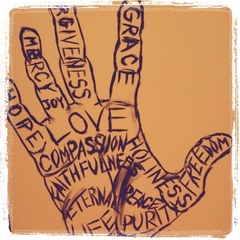 GRACE
FORGIVENESS
MERCY
JOY
HOPE
LOVE
COMPASSION
FAITHFULNESS
HOLINESS
FREEDOM
ETERNAL
PEACE
LIFE
PURITY